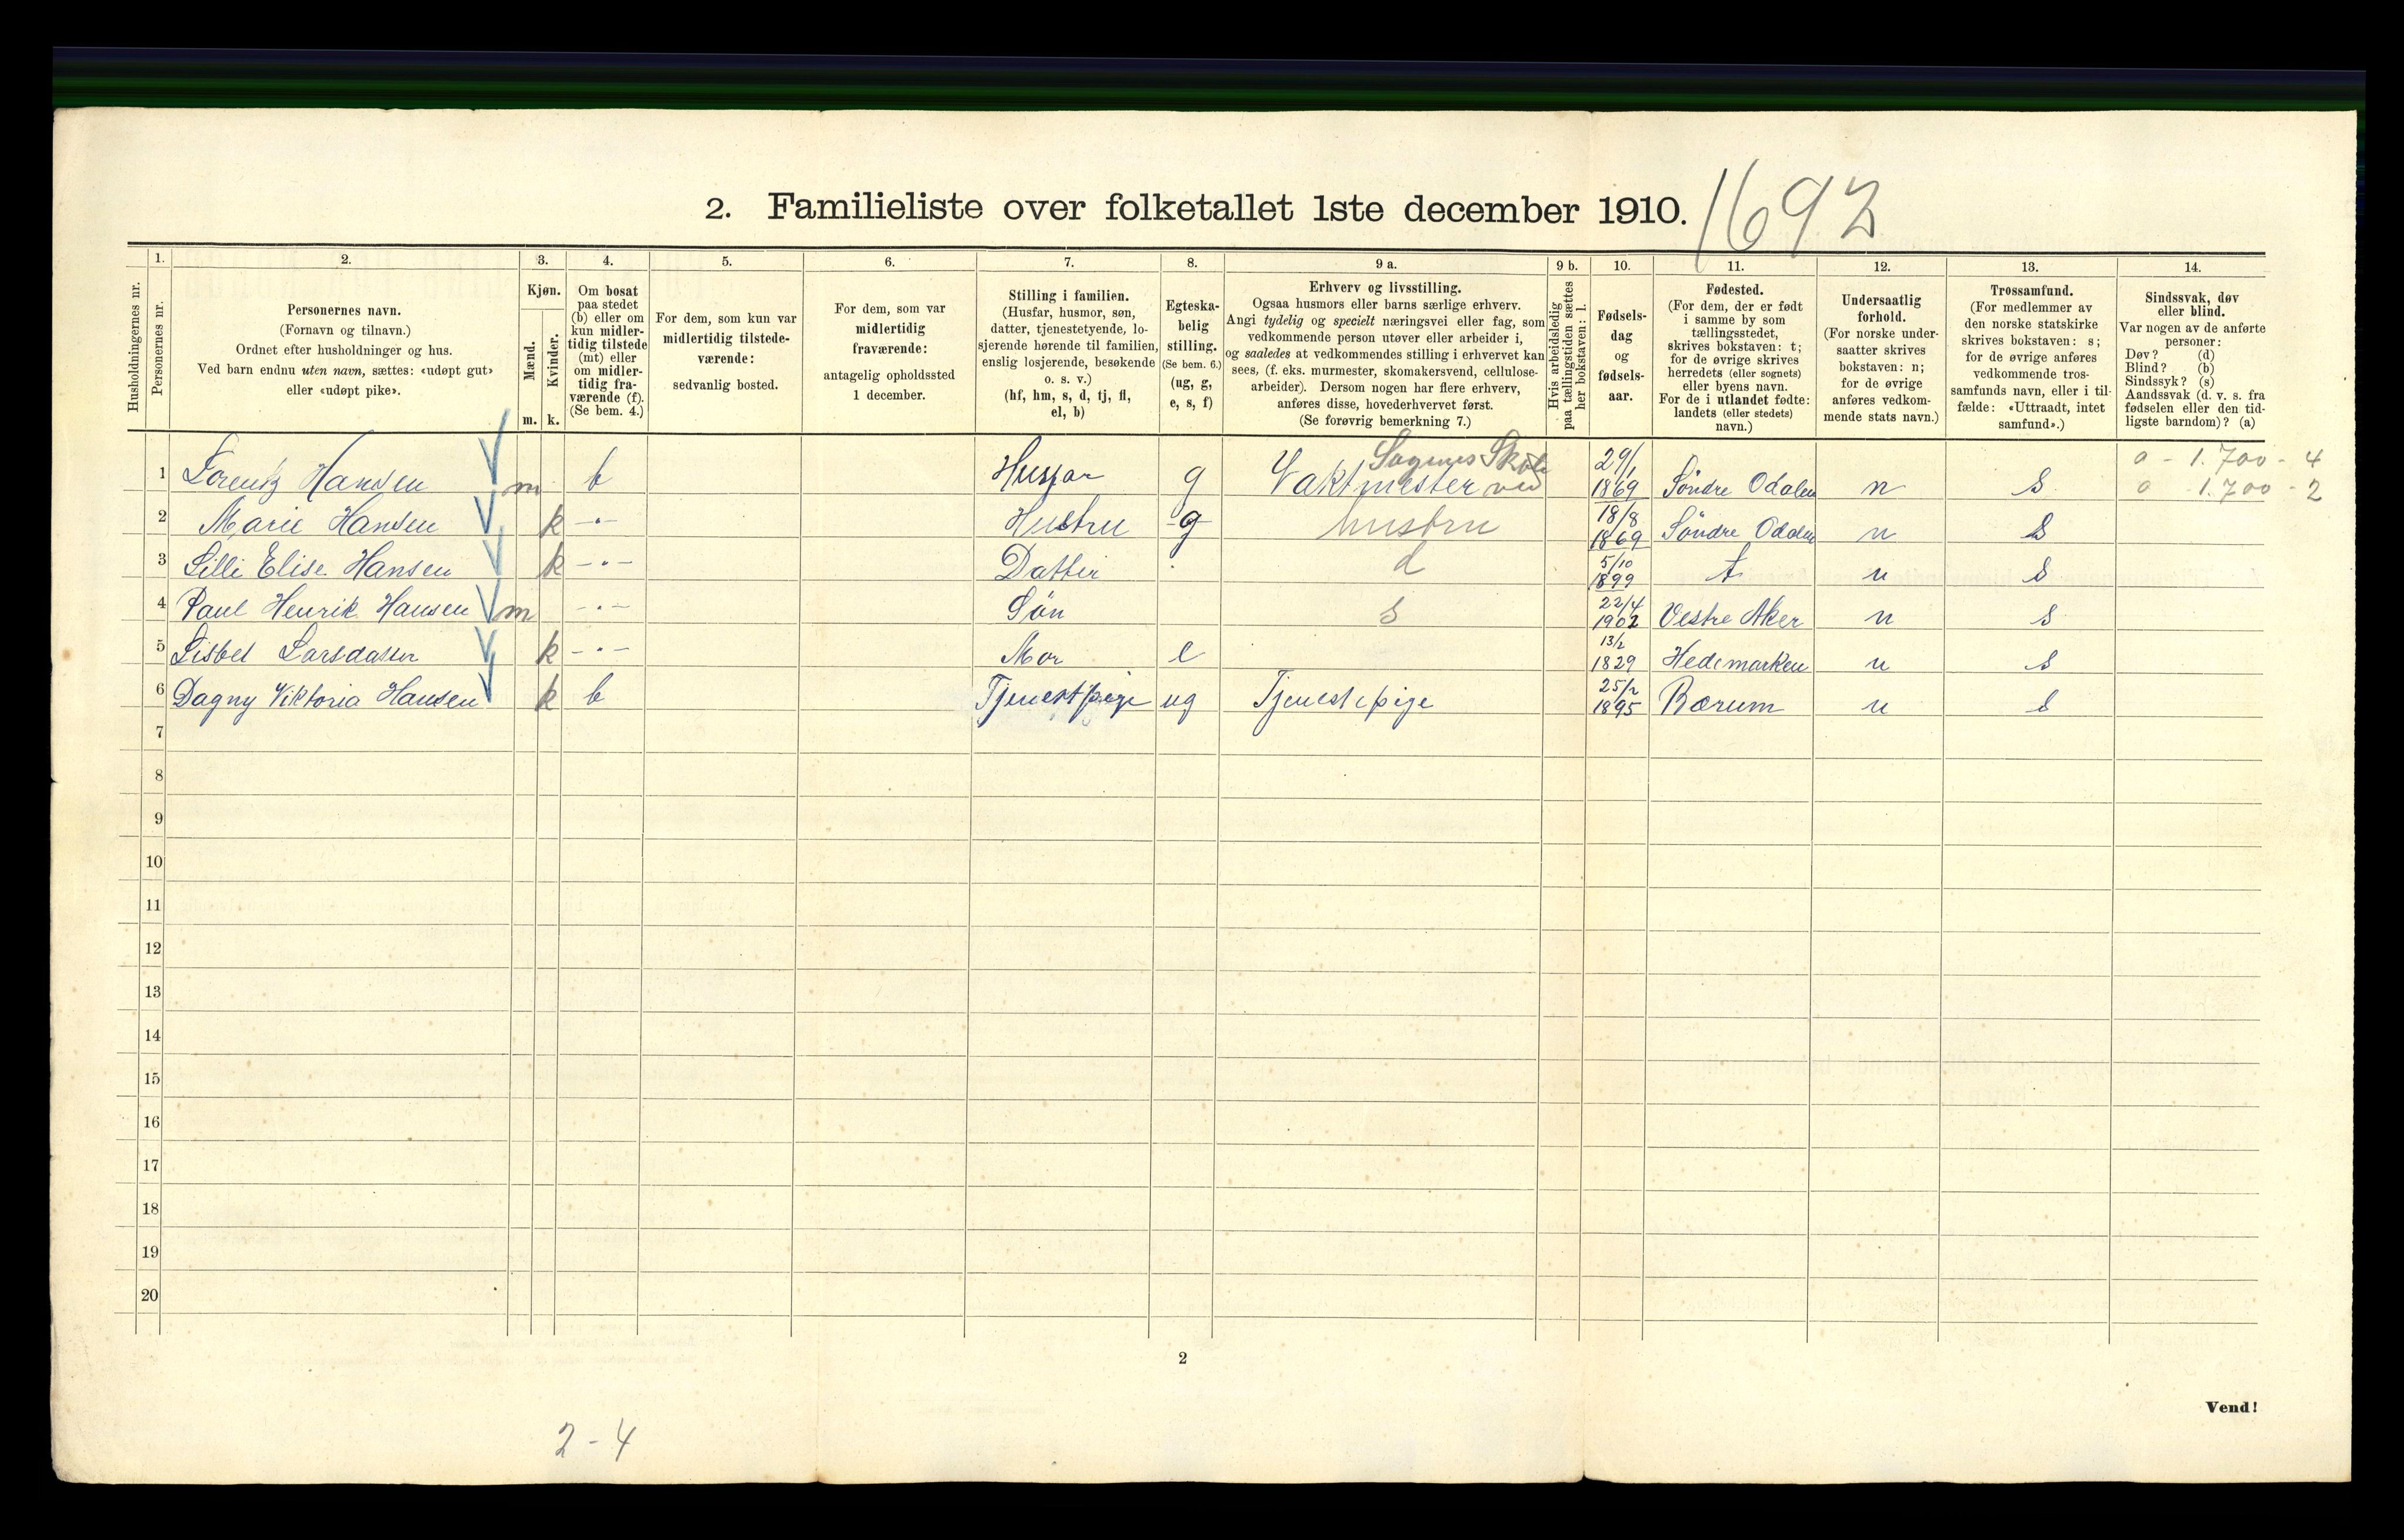 2. Familieliste over folketallet 1ste december 1910. 1692
Husholdningernes nr.
1. Personernes nr.
2. Personernes navn.
(Fornavn og tilnavn.)
Ordnet efter husholdninger og hus.
Ved barn endnu uten navn, sættes: «udøpt gut»
eller «udøpt pike».
3. Kjøn.
Mænd. m.
Kvinder. k.
4. Om bosat
paa stedet
(b) eller om
kun midler-
tidig tilstede
(mt) eller
om midler-
tidig fra-
værende (f).
(Se bem. 4.)
5. For dem, som kun var
midlertidig tilstede-
værende:
sedvanlig bosted.
6. For dem, som var
midlertidig
fraværende:
antagelig opholdssted
1 december.
7. Stilling i familien.
(Husfar, husmor, søn,
datter, tjenestetyende, lo-
sjerende hørende til familien,
enslig losjerende, besøkende
o. s. v.)
(hf, hm, s, d, tj, fl,
el, b)
8. Egteska-
belig
stilling.
(Se bem. 6.)
(ug, g,
e, s, f)
9 a. Erhverv og livsstilling.
Ogsaa husmors eller barns særlige erhverv.
Angi tydelig og specielt næringsvei eller fag, som
vedkommende person utøver eller arbeider i,
og saaledes at vedkommendes stilling i erhvervet kan
sees, (f. eks. murmester, skomakersvend, cellulose-
arbeider). Dersom nogen har flere erhverv,
anføres disse, hovederhvervet først.
(Se forøvrig bemerkning 7.)
9 b. Hvis arbeidsledig
paa tællingstiden sættes
her bokstaven: l.
10. Fødsels-
dag
og
fødsels-
aar.
11. Fødested.
(For dem, der er født
i samme by som
tællingsstedet,
skrives bokstaven: t;
for de øvrige skrives
herredets (eller sognets)
eller byens navn.
For de i utlandet fødte:
landets (eller stedets)
navn.)
12. Undersaatlig
forhold.
(For norske under-
saatter skrives
bokstaven: n;
for de øvrige
anføres vedkom-
mende stats navn.)
13. Trossamfund.
(For medlemmer av
den norske statskirke
skrives bokstaven: s;
for de øvrige anføres
vedkommende tros-
samfunds navn, eller i til-
fælde: «Uttraadt, intet
samfund».)
14. Sindssvak, døv
eller blind.
Var nogen av de anførte
personer:
Døv? (d)
Blind? (b)
Sindssyk? (s)
Aandssvak (d. v. s. fra
fødselen eller den tid-
ligste barndom)? (a)
1 Lorentz Hansen m b Husfar g Vaktmester ved Sagenes Skole 29/1 1869 Söndre Odalen n s 0 - 1.700 - 4
0 - 1.700 - 2
2 Marie Hansen k -"- Hustru g hustru 18/8 1869 Söndre Odalen n s
3 Lilli Elise Hansen k -"- Datter d 5/10 1899 t n s
4 Paul Henrik Hansen m -"- Sön s 22/4 1902 Vestre Aker n s
5 Lisbet Larsdatter k -"- Mor e 13/2 1829 Hedemarken n s
6 Dagny Viktoria Hansen k b Tjenestpige ug Tjenestepige 25/2 1895 Bærum n s
7
8
9
10
11
12
13
14
15
16
17
18
19
20
2
Vend!
2-4